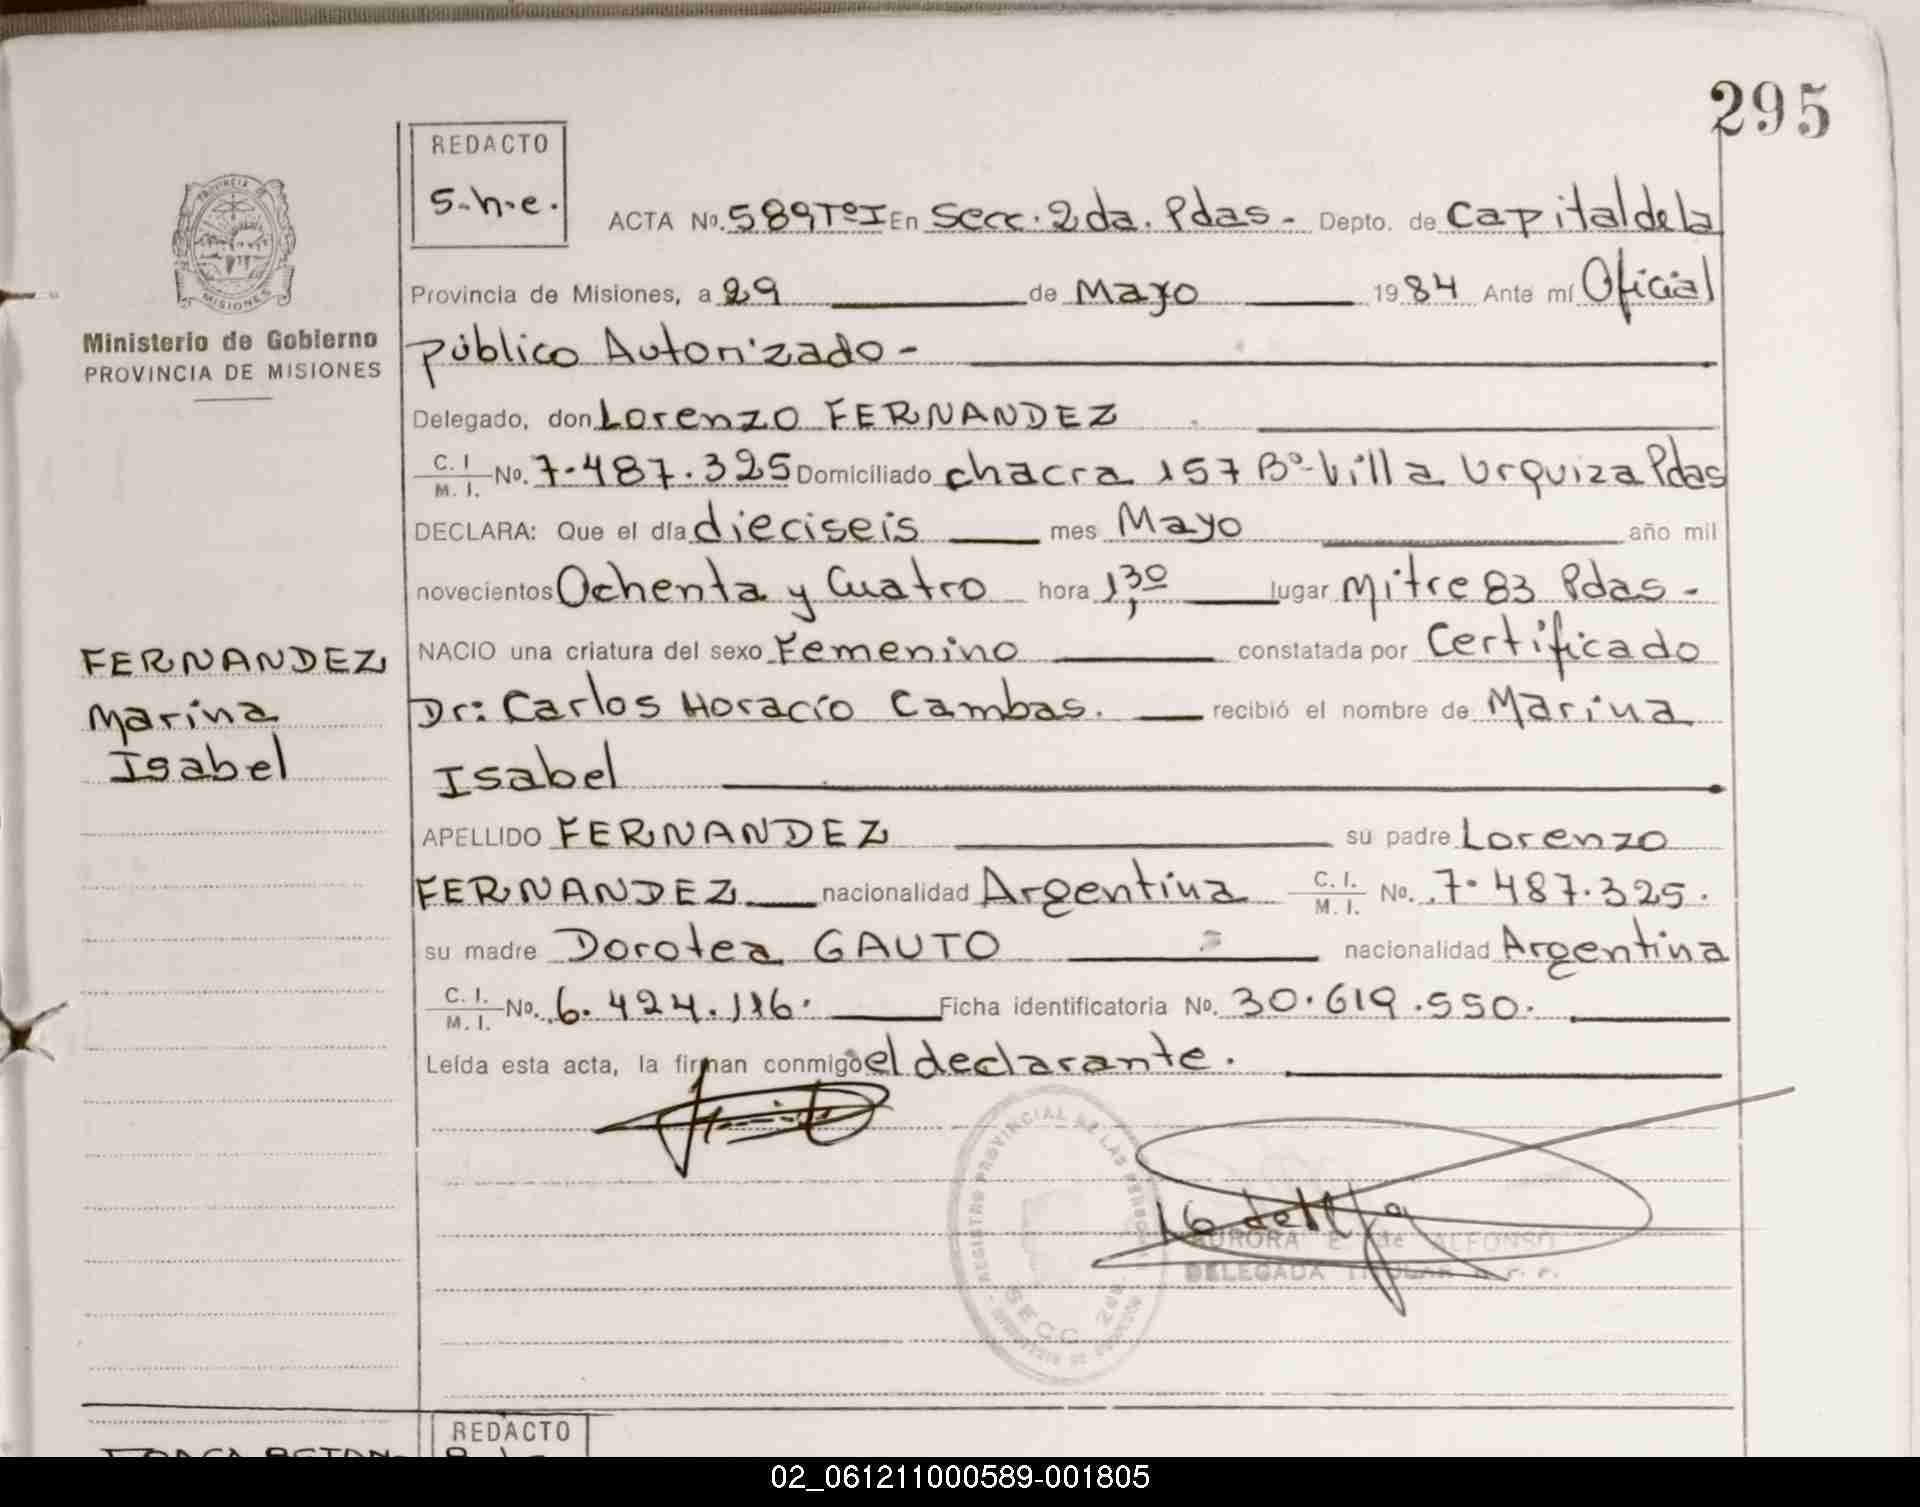 295
REDACTO
S.h.e.
ACTA No. 589 Tº I En Secc. 2da. Pdas - Depto. de Capital de la
Provincia de Misiones, a 29 de Mayo 1984 Ante mí Oficial
público Autorizado -
PROVINCIA DE
MISIONES
Ministerio de Gobierno
PROVINCIA DE MISIONES
Delegado, don Lorenzo FERNANDEZ
C. I. / M. I. No. 7.487.325 Domiciliado chacra 157 Bº Villa Urquiza Pdas
DECLARA: Que el día dieciseis mes Mayo año mil
novecientos Ochenta y Cuatro hora 1,30 lugar Mitre 83 Pdas -
FERNANDEZ
Marina
Isabel
NACIO una criatura del sexo Femenino constatada por Certificado
Dr: Carlos Horacio Cambas. recibió el nombre de Marina
Isabel
APELLIDO FERNANDEZ su padre Lorenzo
FERNANDEZ nacionalidad Argentina C. I. / M. I. No. 7.487.325.
su madre Dorotea GAUTO nacionalidad Argentina
C. I. / M. I. No. 6.424.116. Ficha identificatoria No. 30.619.550.
Leída esta acta, la firman conmigo el declarante.
REGISTRO PROVINCIAL DE LAS PERSONAS
SECC. 2da
AURORA E. de ALFONSO
DELEGADA TITULAR
REDACTO
02_061211000589-001805